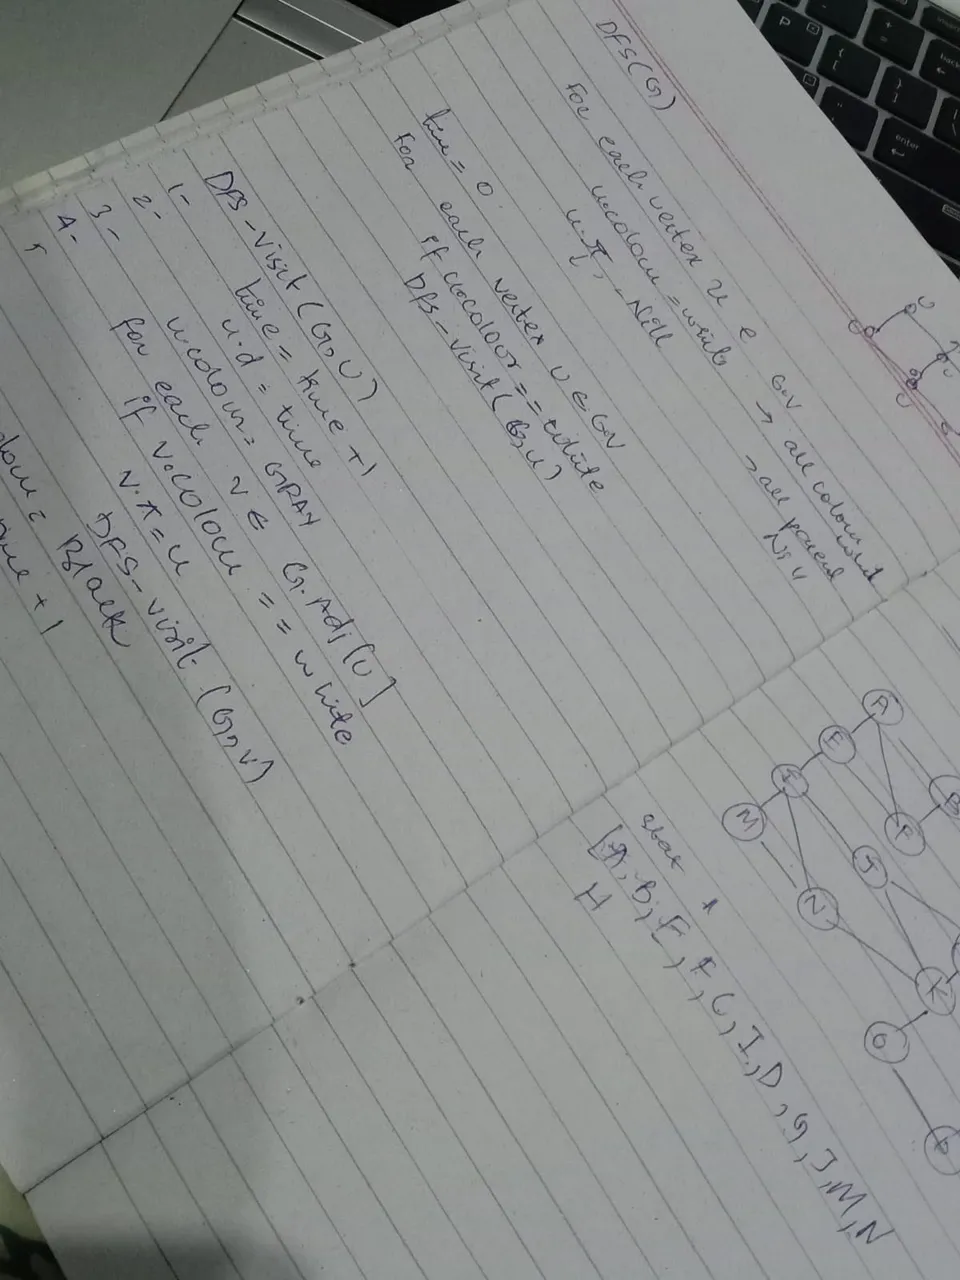 DFS(G)
For each vertex u ∈ G.V → all colour
u.colour = white → all parent
u.π = Nill
time = 0
For each vertex u ∈ G.V
if u.colour == white
DFS-visit(G,u)
DFS-visit(G,u)
1- time = time +1
2- u.d = time
3- u.colour = GRAY
4- for each v ∈ G.Adj[u]
if v.colour == white
v.π = u
DFS-visit(G,v)
Black
+ 1
A
E
B
I
F
M
J
N
K
O
P
start A
[A, B, E, F, C, I, D, G, J, M, N
H
P
enter